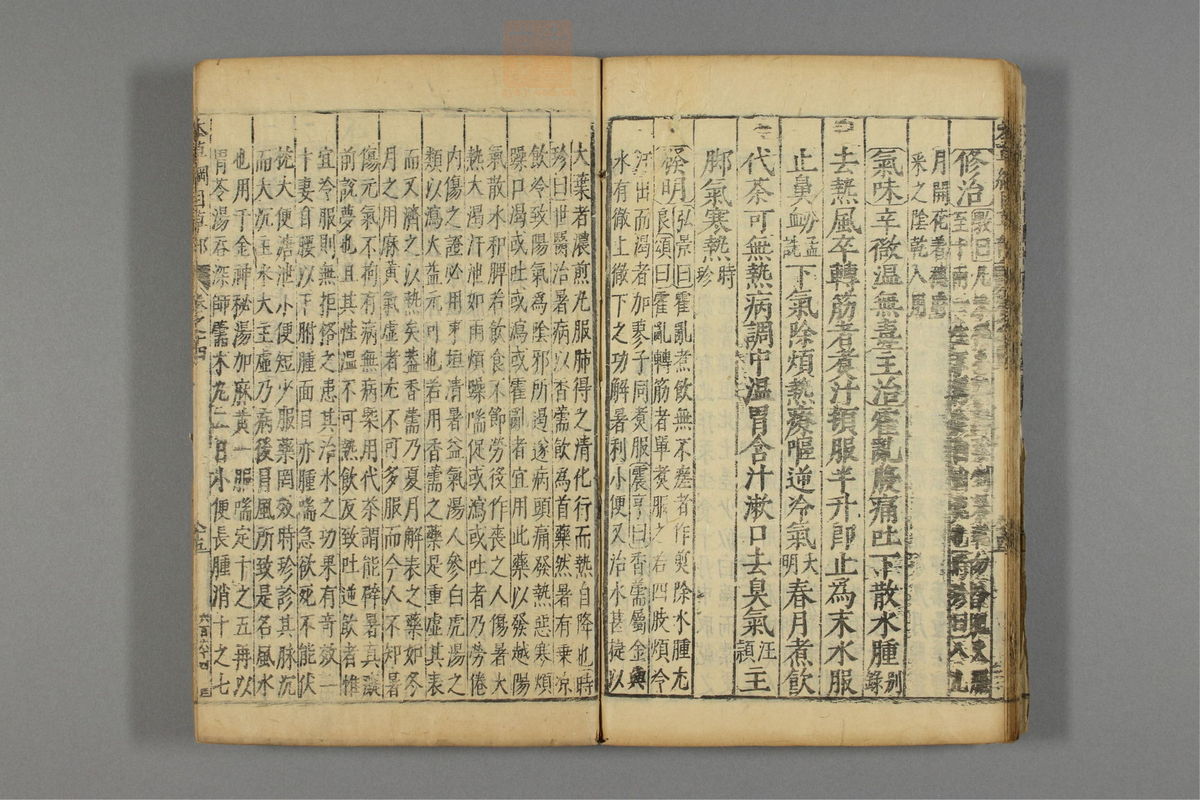 修治
月開花着穗時
采之陰乾入用
氣味辛微温無毒主治霍亂腹痛吐下散水腫别錄
去熱風卒轉筋者煑汁頓服半升卽止為末水服
止鼻衂孟詵下氣除煩熱療嘔逆冷氣大明春月煮飲
代茶可無熱病調中温胃含汁漱口去臭氣汪頴主
脚氣寒熱時珍
發明弘景曰霍亂煮飲無不瘥者作煎除水腫尤
良頌曰霍亂轉筋者單煑服之若四肢煩冷
汗出而渴者加蓼子同煑服震亨曰香薷屬金與
水有徹上徹下之功解暑利小便又治水甚捷以
大葉者濃煎丸服肺得之清化行而熱自降也時
珍曰世醫治暑病以香薷飲為首藥然暑有乗凉
飲冷致陽氣為陰邪所遏遂病頭痛發熱惡寒煩
躁口渴或吐或瀉或霍亂者宜用此藥以發越陽
氣散水和脾若飲食不節勞役作喪之人傷暑大
熱大渴汗泄如雨煩躁喘促或瀉或吐者乃勞倦
内傷之證必用東垣清暑益氣湯人參白虎湯之
類以瀉火益元可也若用香薷之藥是重虛其表
而又濟之以熱矣葢香薷乃夏月解表之藥如冬
月之用麻黄氣虛者尤不可多服而今人不知暑
傷元氣不拘有病無病槩用代茶謂能辟暑真癡
前說夢也且其性温不可熱飲反致吐逆飲者惟
宜冷服則無拒格之患其治水之功果有奇效一
士妻自腰以下胕腫面目亦腫喘急欲死不能伏
枕大便溏泄小便短少服藥罔效時珍診其脉沉
而大沉主水大主虛乃病後冒風所致是名風水
也用千金神秘湯加麻黄一服喘定十之五再以
胃苓湯吞深師薷术丸二日小便長腫消十之七
本草綱目草部